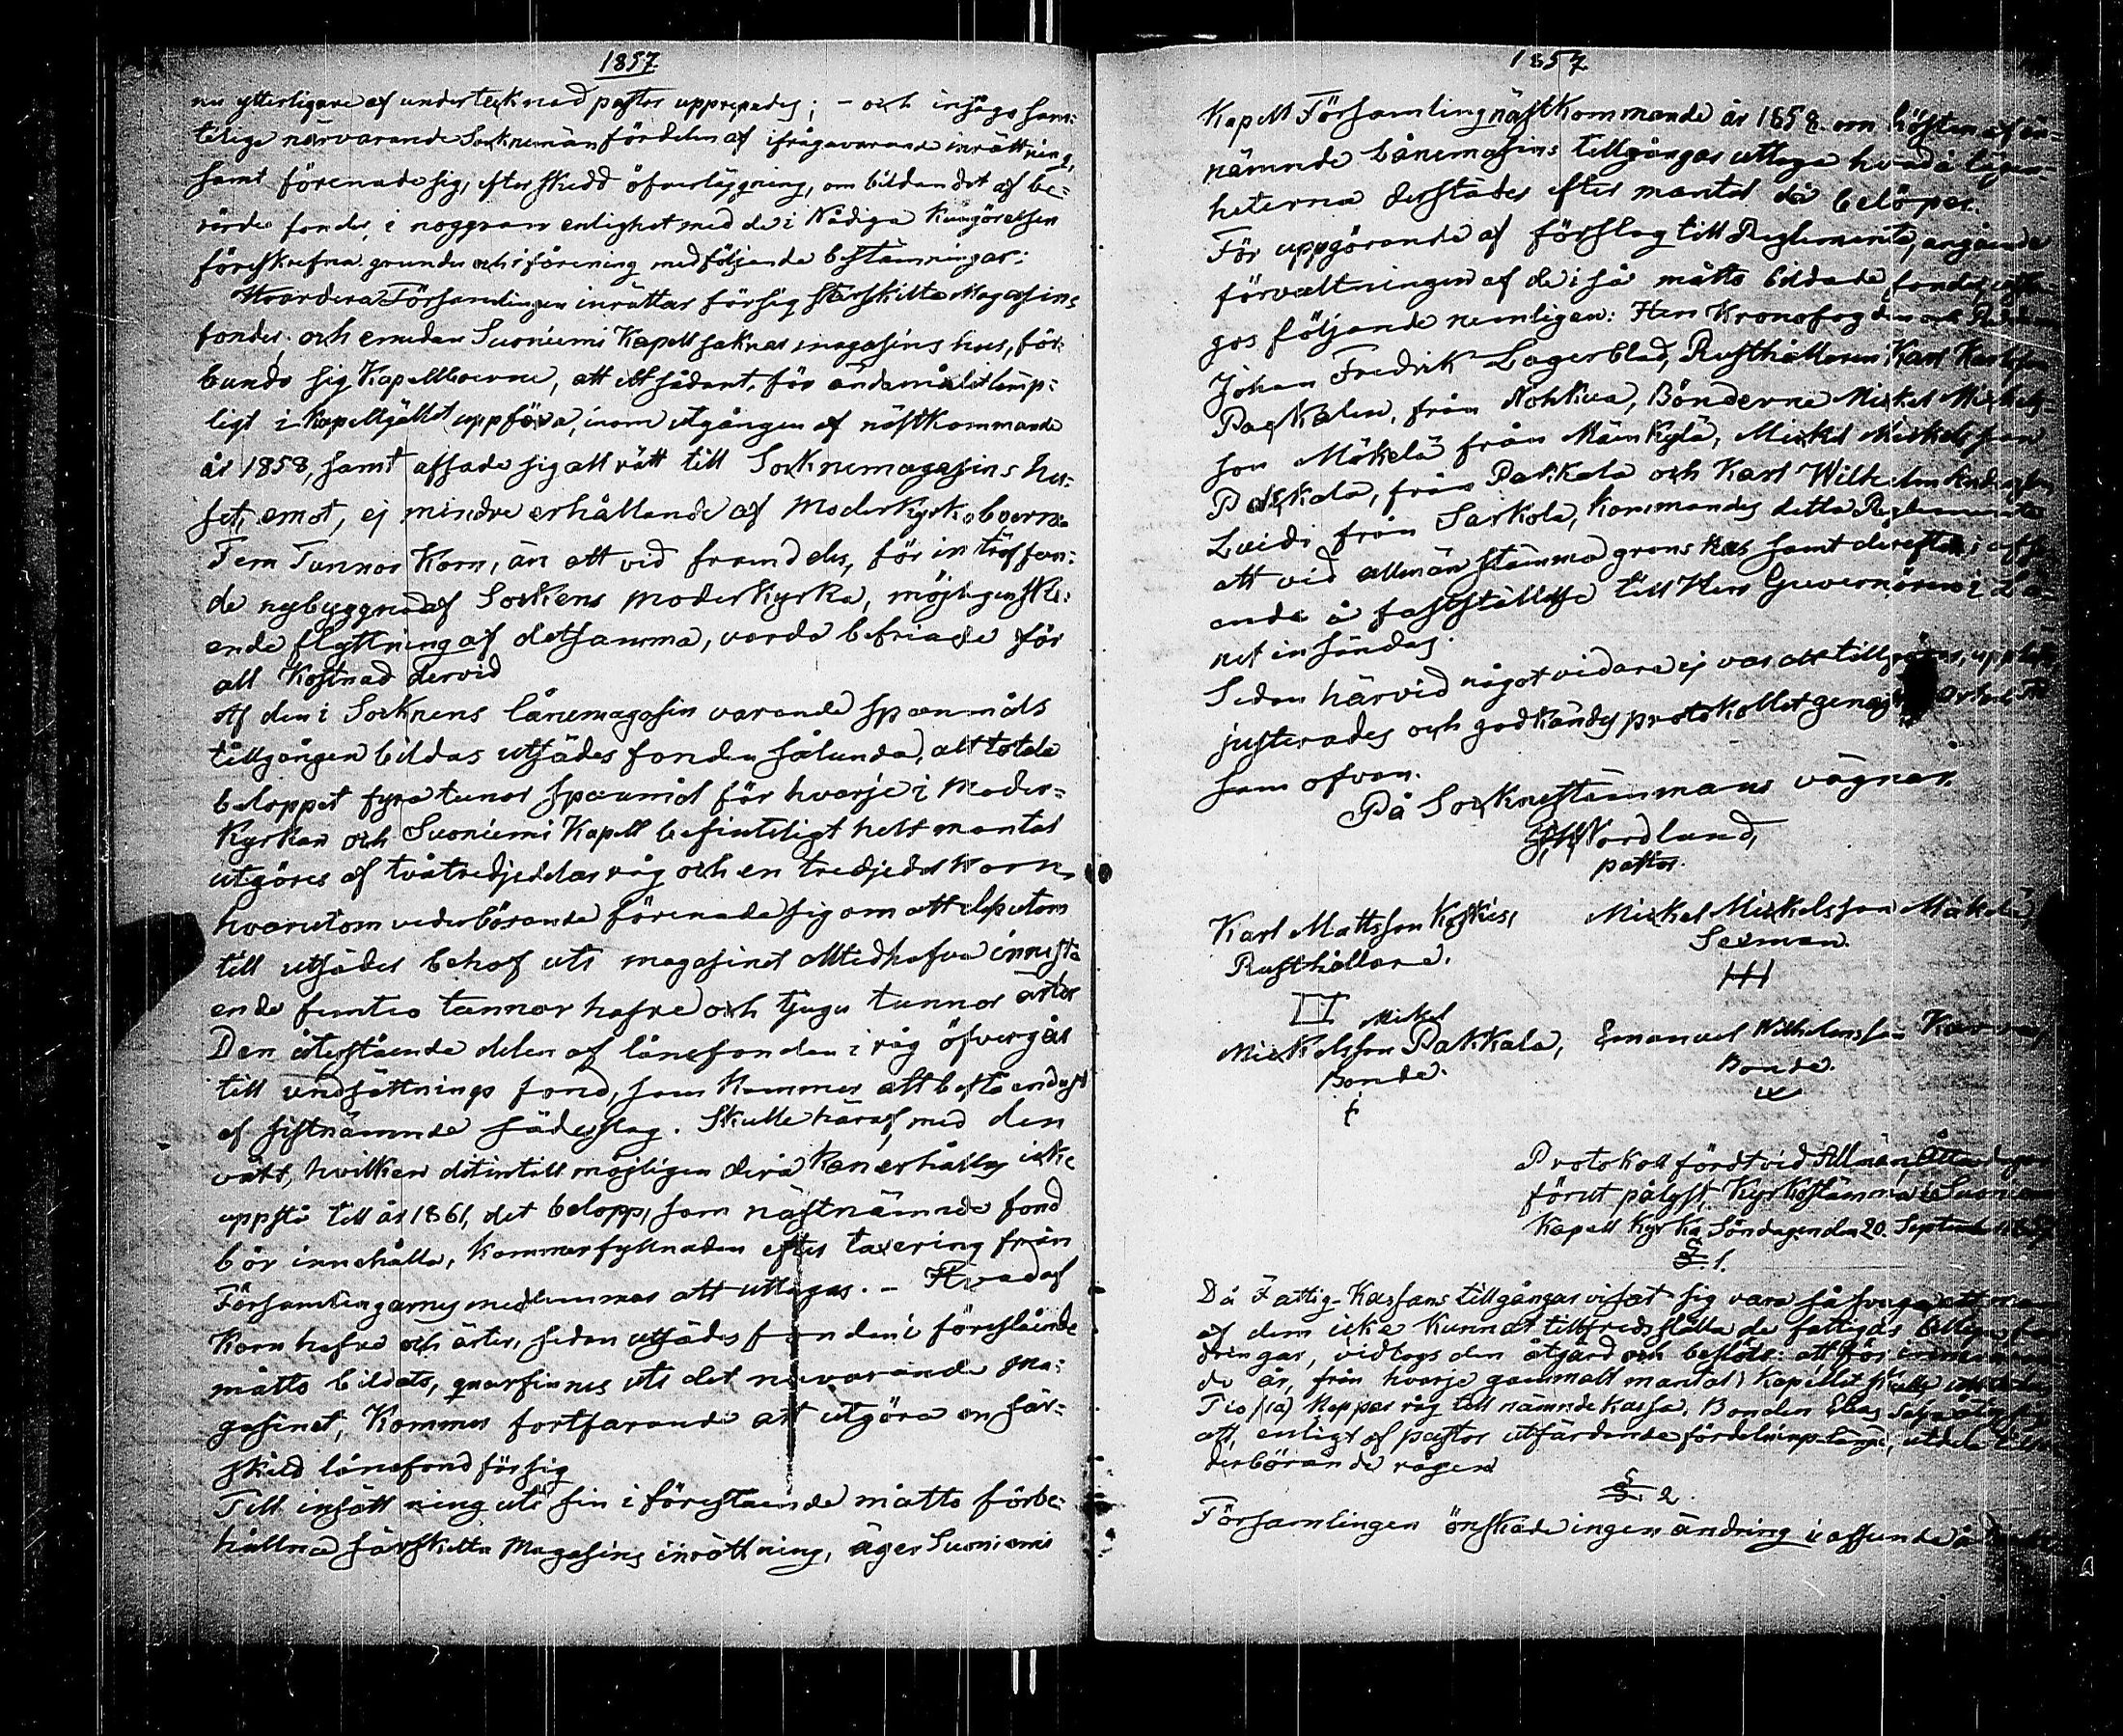 1857
nu ytterligare af undertecknad pastor upprepades; - och insågo sam:
telige närvarande Socknemän fördelen af ifrågavarande inrättning,
samt förenade sig, efter skedd öfverläggning, om bildandet af be:
rörde fonder, i noggrann enlighet med de i Nådiga Kungörelsen
föreskrefna grunder och i förening med följande bestämningar:
Hvardera Församlingen inrättar för sig särskilta Magasins
fonder. och emedan Suoniemi Kapell saknar magasins hus, för:
bundo sig Kapellboerne, att ett sådant, för ändamålet lämp:
ligt i Kapellgället uppföra, inom utgången af nästkommande
år 1858, samt afsade sig all rätt till Socknemagasins hu:
set, emot, ej mindre erhållande af Moderkyrkoboerne
Fem Tunnor Korn, än att vid framdeles, för inträffan:
de nybyggnad af Sockens moderkyrka, möjligen ske:
ende flyttning af detsamma, varda befriade för
all kostnad dervid
Af den i Socknens lånemagasin varande spanmåls
tillgången bildas utsädes fonden sålunda, att totala
beloppet fyra tunnor spanmål för hvarje i Moder-
kyrkan och Suoniemi Kapell befinteligt helt mantal
utgöres af två tredjedelar råg och en tredjedel Korn,
hvarutom vederbörande förenade sig om att desutom
till utsädes behof uti magasinet alltid hafva innestå
ende femtio tunnor hafre och tjugu tunnor ärter
Den återstående delen af lånefonden i råg öfvergår
till undsättnings fond, som kommer att bestå endast
af sistnämnde sädesslag. Skulle häraf, med den
vått, hvilken ditintill möjligen derå kan erhållas icke
uppstå till år 1861, det belopp, som nästnämnde fond
bör innehålla, kommer fyllnaden efter taxering från
Församlingarnes medlemmar att uttagas. - Hvad af
Korn hafre och ärter, sedan utsädes fonden i föreslående
måtto bildats, qvarfinnes uti det nuvarande Ma:
gasinet, Kommer fortfarande att utgöra en sär-
skild lånefond för sig
Till insättning uti sin i förestående måtto förbe:
hållna särskilta Magasins inrättning, äger Suoniemi
1857
Kapell Församling nästkommande år 1858 om hösten af
nämnde lånemagasins tillgångar uttaga hvad å lägen-
heterna derstädes efter mantal då belöper.
För uppgörande af förslag till Reglemente, angående
förvaltningen af de i så måtto bildade fonder
gos följande nemligen: Herr Kronofogden och
Johan Fredrik Lagerblad, Rusthållaren Karl Karlsson
Packalen, från Nohkua, Bönderne Mickel Mickels-
son Mäkelä från Märnkylä, Mickel Mickelsson
Pakkala, från Pakkala och Karl Wilhelm
Luidi från Sarkola, kommandes detta Reglemente
att vid allmän stämma granskas samt derefter
ende å fastställelse till Herr Guvernören i Lä-
net insändas.
Sedan härvid något vidare ej var att tillgöras,
justerades och godkändes protokollet genast
som ofvan.
På Socknestämmans vägnar.
Nordlund,
pastor.
Karl Mattsson Koskis, Mickel Mickelsson Mäkelä
Rusthållare. Sexman.
Mickel
Mickelsson Pakkala, Emanuel Wilhelmsson
Bonde. Bonde.
Protokoll fördt vid Allmän
förut pålyst Kyrkostämma i Suoniemi
Kapell Kyrka Söndagen den 20. September
§ 1.
Då Fattig-Kassans tillgångar visat sig vara så svaga att man
af dem icke kunnat tillfredsställa de fattigas
dringar, vidtogs den åtgärd och beslöts: att för
de år, från hvarje gammalt mantal i Kapellet skulle
Tio (10) Kappar råg till nämnde kassa. Bonden Elias
att, enligt af pastor utfärdande fördelnings längd, utdela
derbörande rågen
§ 2.
Församlingen önskade ingen ändring i afseende å